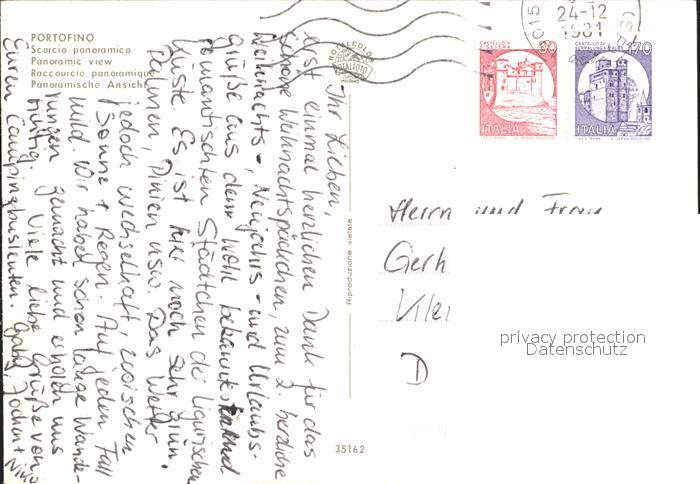 PORTOFINO
Scorcio panoramico
Panoramic view
Raccourcie panoramique
Panoramische Ansicht
Ihr Lieben,
erst einmal herzlichen Dank für das
schöne Weihnachtspäckchen, zum 2. herzliche
Weihnachts-, Neujahrs- und Urlaubs-
grüße aus dem wohl bekannten und
romantischsten Städtchen der ligurischen
Küste. Es ist hier noch sehr grün,
Palmen, Pinien usw. Das Wetter
jedoch wechselhaft, zwischen
Sonne + Regen. Auf jeden Fall
mild. Wir haben schon lange Wande-
rungen gemacht und erholen uns
richtig. Viele liebe Grüße von
Euren Campingbusleuten. Gabi, Jochen +
Riproduzione vietata
35162
24-12
1981
CASTELLO DI
80
ITALIA
CASTELLO DI
SERRALUNGA D'ALBA
170
ITALIA
Herrn und Frau
Gerh
Klei
D
privacy protection
Datenschutz